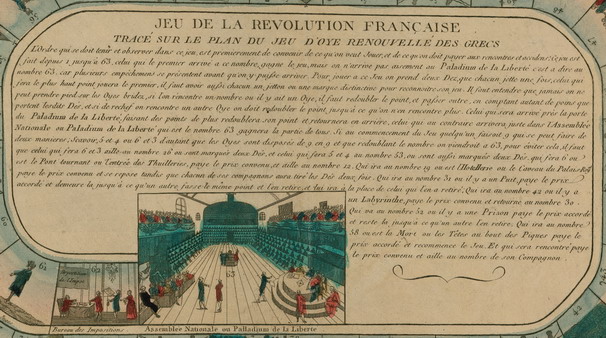 JEU DE LA REVOLUTION FRANÇAISE
TRACÉ SUR LE PLAN DU JEU D'OYE RENOUVELLÉ DES GRECS
L'Ordre qui se doit tenir et observer dans ce jeu, est premierement de convenir de ce qu'on veut Jouer, et de ce qu'on doit payer aux rencontres et accidens; Ce jeu est
fait depuis 1 jusqu'à 63, celui qui le premier arrive à ce nombre, gagne le jeu, mais on n'arrive pas aisement au Palladium de la Liberté c'est a dire au
nombre 63, car plusieurs empêchemens se présentent avant qu'on y puisse arriver. Pour jouer à ce Jeu on prend deux Dez, que chacun jette une fois, celui qui
fera le plus haut point jouera le premier, il faut avoir aussi chacun un jetton ou une marque distincte pour reconnoître son jeu. Il faut entendre que jamais on ne
peut prendre pied sur les Oyes bridés, si l'on rencontre un nombre où il y ait une Oye, il faut redoubler le point, et passer outre, en comptant autant de points que
portent lesdits Dés, et si de rechef on rencontre un autre Oye on doit redoubler le point, jusqu'à ce qu'on n'en rencontre plus. Celui qui sera arrivé près la porte
du Paladium de la Liberté, faisant des points de plus redoublera son point et retournera en arriere, celui qui au contraire arrivera juste dans l'Assemblée
Nationale ou Paladium de la Liberté qui est le nombre 63 gagnera la partie de tous. Si au commencement du Jeu quelqu'un faisoit 9 qui se peut faire de
deux manieres, Savoir, 5 et 4 ou 6 et 3 d'autant que les Oyes sont disposés de 9 en 9 et que redoublant le nombre on viendroit a 63, pour éviter cela, il faut
que celui qui fera 6 et 3 aille au nombre 26 où sont marqués deux Dés, et celui qui fera 5 et 4 au nombre 53, ou sont aussi marqués deux Dés, qui fera 6 où
est le Pont tournant ou l'entrée des Thuilleries, paye le prix convenu, et aille au nombre 12. Qui ira au nombre 19 ou est l'Hotellerie ou le Caveau du Palais Roy
paye le prix convenu et se repose tandis que chacun de ses compagnons aura tiré les Dés deux fois. Qui ira au nombre 31 ou il y a un Puit paye le prix
accordé et demeure la jusqu'à ce qu'un autre fasse le même point et l'en retire, et lui ira à la place de celui qui l'en a retiré. Qui ira au nombre 42 ou il y a
un Labyrinthe, paye le prix convenu et retourne au nombre 30.
Qui va au nombre 52 ou il y a une Prison paye le prix accordé
et reste la jusqu'à ce qu'un autre l'en retire. Qui ira au nombre
58 ou est la Mort ou les Têtes au bout des Piques paye le
prix accordé et recommence le Jeu. Et qui sera rencontré paye
le prix convenu et aille au nombre de son Compagnon
61
62
63
Bureau des Impositions
Assemblée Nationale ou Palladium de la Liberté